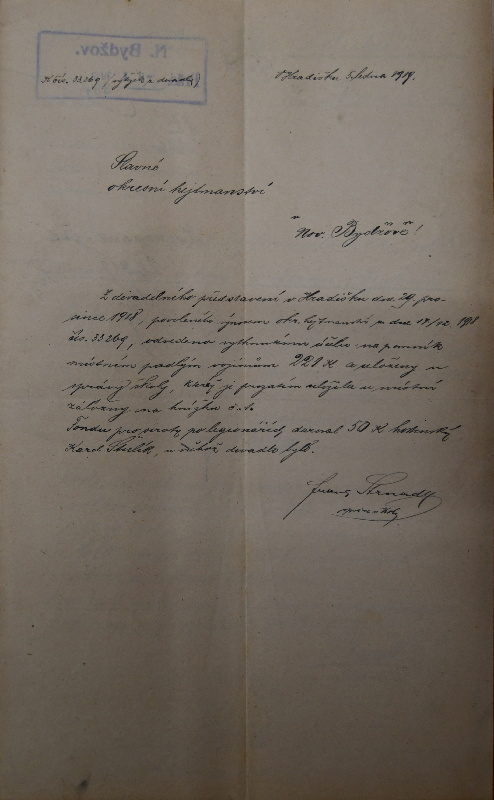 N. Bydžov.
K čís. 33269 (výtěžek z divadla)
V Hradišku 5. ledna 1919.
Slavné
okresní hejtmanství
v Nov. Bydžově!
Z divadelního představení v Hradišku dne 29. pro-
since 1918, povoleného výnosem okr. hejtmanství ze dne 19/12. 1918
čís. 33269, odvedeno vytknutému účelu: na pomník
místním padlým vojínům 228 K a uloženy u
správy školy, která je prozatím uložila u místní
záložny na knížku č.
Fondu pro siroty po legionářích daroval 50 K hostinský
Karel, u něhož divadlo bylo.
Franz Strnad